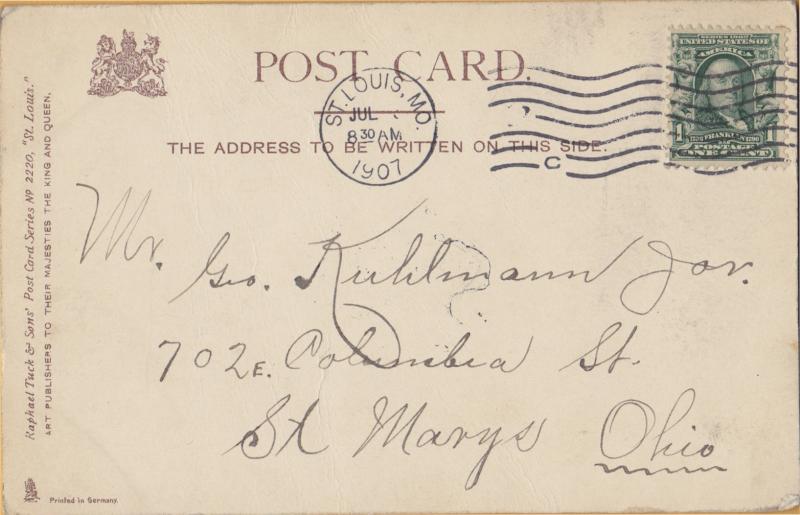 POST CARD.
THE ADDRESS TO BE WRITTEN ON THIS SIDE.
ST. LOUIS, MO.
JUL
8 30 AM
1907
C
SERIES 1902
UNITED STATES OF
AMERICA
FRANKLIN
POSTAGE
ONE CENT
1
Mr. Geo. Kuhlmann Jor.
702 E. Columbia St.
St Marys Ohio
Raphael Tuck & Sons' Post Card Series Nº 2220, "St. Louis."
ART PUBLISHERS TO THEIR MAJESTIES THE KING AND QUEEN.
Printed in Germany.